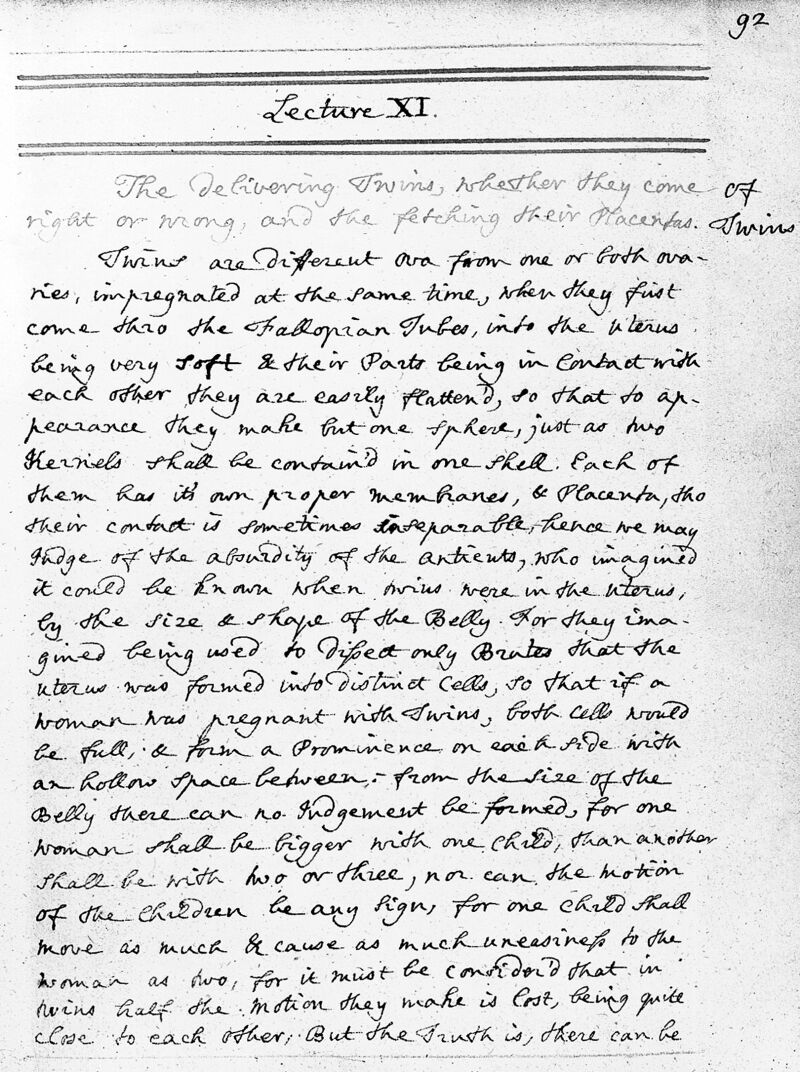 92
Lecture XI.
The delivering Twins, whether they come
right or wrong, and the fetching their Placentas.
of
Twins
Twins are different ova from one or both ova-
ries, impregnated at the same time, when they first
come thro the Fallopian Tubes, into the uterus
being very soft & their Parts being in Contact with
each other they are easily flatten'd, so that to ap-
pearance they make but one sphere, just as two
Kernels shall be contain'd in one shell. Each of
them has it's own proper membranes, & Placenta, tho
their contact is sometimes inseparable, hence we may
Judge of the absurdity of the antients, who imagined
it could be known when twins were in the uterus,
by the size & shape of the Belly. For they ima-
gined being used to dissect only Brutes that the
uterus was formed into distinct Cells, so that if a
woman was pregnant with Twins, both Cells would
be full, & form a Prominence on each side with
an hollow space between,- from the size of the
Belly there can no Judgement be formed, for one
woman shall be bigger with one Child, than another
shall be with two or three, nor can the motion
of the Children be any sign, for one Child shall
move as much & cause as much uneasiness to the
woman as two, for it must be consider'd that in
twins half the motion they make is lost, being quite
close to each other, But the Truth is, there can be